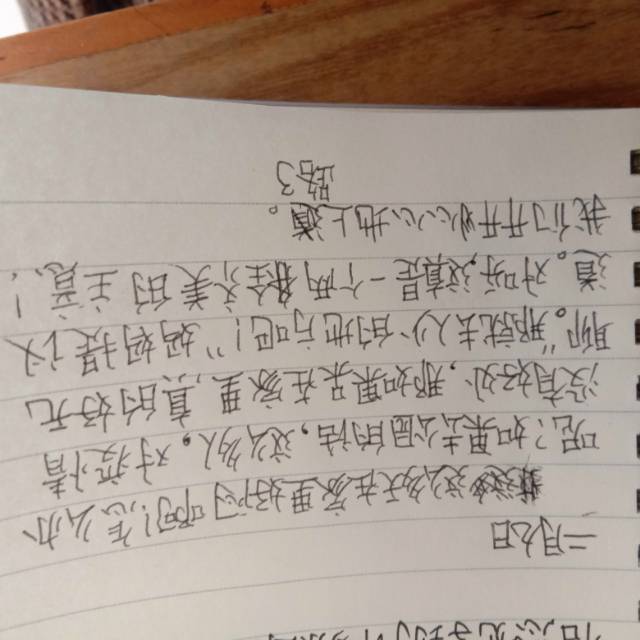 二月九日
这么多天在家里好闷啊!怎么办
呢?如果去公园的话,这么多人,对疫情
没有好处,那如果呆在家里,真的好无
聊。"那就去人少的地方吧!"妈妈提议
道。对呀,这真是一个两全齐美的主意!
我们开开心心地上。
路了